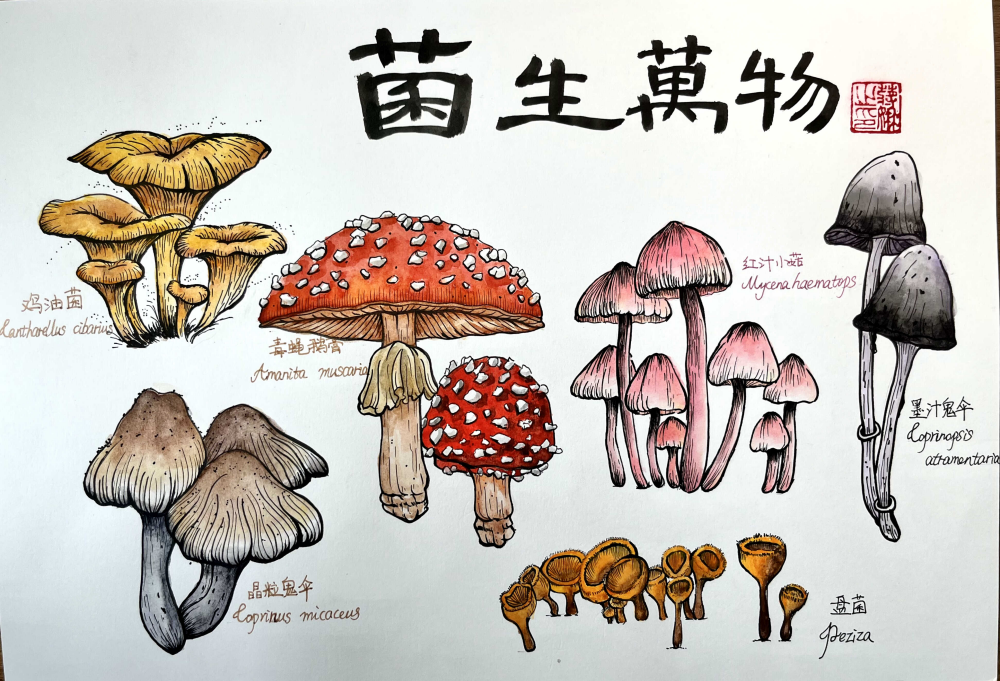 菌生萬物
鸡油菌
Cantharellus cibarius
毒蝇鹅膏
Amanita muscaria
红汁小菇
Mycena haematops
墨汁鬼伞
Coprinopsis
atramentaria
晶粒鬼伞
Coprinus micaceus
盘菌
Peziza